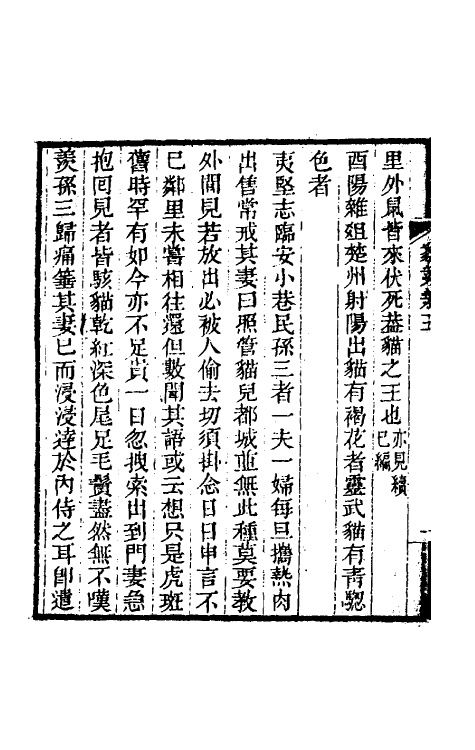 里外鼠皆來伏死蓋貓之王也亦見續已編
酉陽雜俎楚州射陽出貓有褐花者靈武貓有青驄
色者
夷堅志臨安小巷民孫三者一夫一婦每旦攜熟肉
出售常戒其妻曰照管貓兒都城並無此種莫要教
外間見若放出必被人偷去切須掛念日日申言不
已鄰里未嘗相往還但數聞其語或云想只是虎斑
舊時罕有如今亦不足貴一日忽拽索出到門妻急
抱回見者皆駭貓乾紅深色尾足毛鬚盡然無不嘆
羨孫三歸痛箠其妻已而浸浸達於內侍之耳卽遣